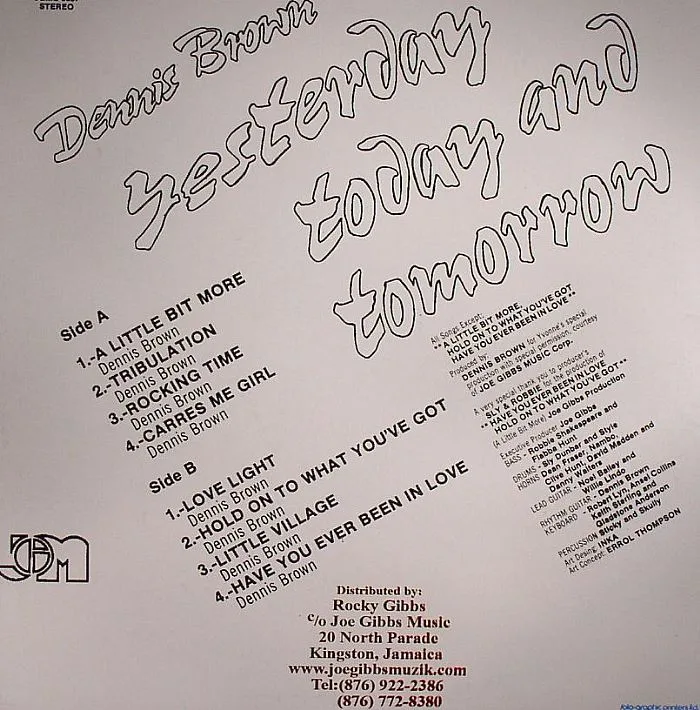 STEREO
Dennis Brown
yesterday
today and
tomorrow
Side A
1.-A LITTLE BIT MORE
Dennis Brown
2.-TRIBULATION
Dennis Brown
3.-ROCKING TIME
Dennis Brown
4.-CARRES ME GIRL
Dennis Brown
Side B
1.-LOVE LIGHT
Dennis Brown
2.-HOLD ON TO WHAT YOU'VE GOT
Dennis Brown
3.-LITTLE VILLAGE
Dennis Brown
4.-HAVE YOU EVER BEEN IN LOVE
Dennis Brown
All Songs Except:
**A LITTLE BIT MORE,
HOLD ON TO WHAT YOU'VE GOT,
HAVE YOU EVER BEEN IN LOVE**
Produced by:
DENNIS BROWN for Yvonne's special
production with special permission, courtesy
of JOE GIBBS MUSIC Corp.
A very special thank you to producer's
SLY & ROBBIE for the production of
**HAVE YOU EVER BEEN IN LOVE
HOLD ON TO WHAT YOU'VE GOT**
(A Little Bit More) Joe Gibbs Production
Executive Producer Joe Gibbs
BASS - Robbie Shakespeare and
Flabba Hunt
DRUMS - Sly Dunbar and Style
HORNS Dean Fraser, Nambo,
Clive Hunt, David Madden and
Danny Walters
LEAD GUITAR - Noel Bailey and
Willie Lindo
RHYTHM GUITAR - Dennis Brown
KEYBOARD - Robert Lyn, Ansel Collins
Keith Sterling and
Gladstone Anderson
PERCUSSION Sticky and Skully
Art Desing: INKA
Art Concept: ERROL THOMPSON
JGM
Distributed by:
Rocky Gibbs
c/o Joe Gibbs Music
20 North Parade
Kingston, Jamaica
www.joegibbsmuzik.com
Tel:(876) 922-2386
(876) 772-8380